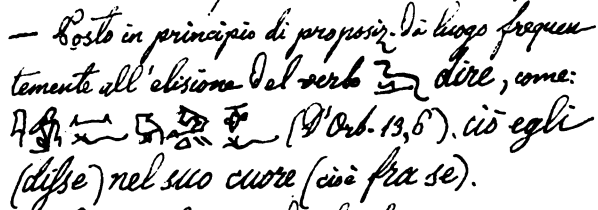 — Posto in principio di proposiz. dà luogo frequen-
temente all'elisione del verbo dire, come:
(D'Orb. 13,6). ciò egli
(disse) nel suo cuore (cioè fra se).